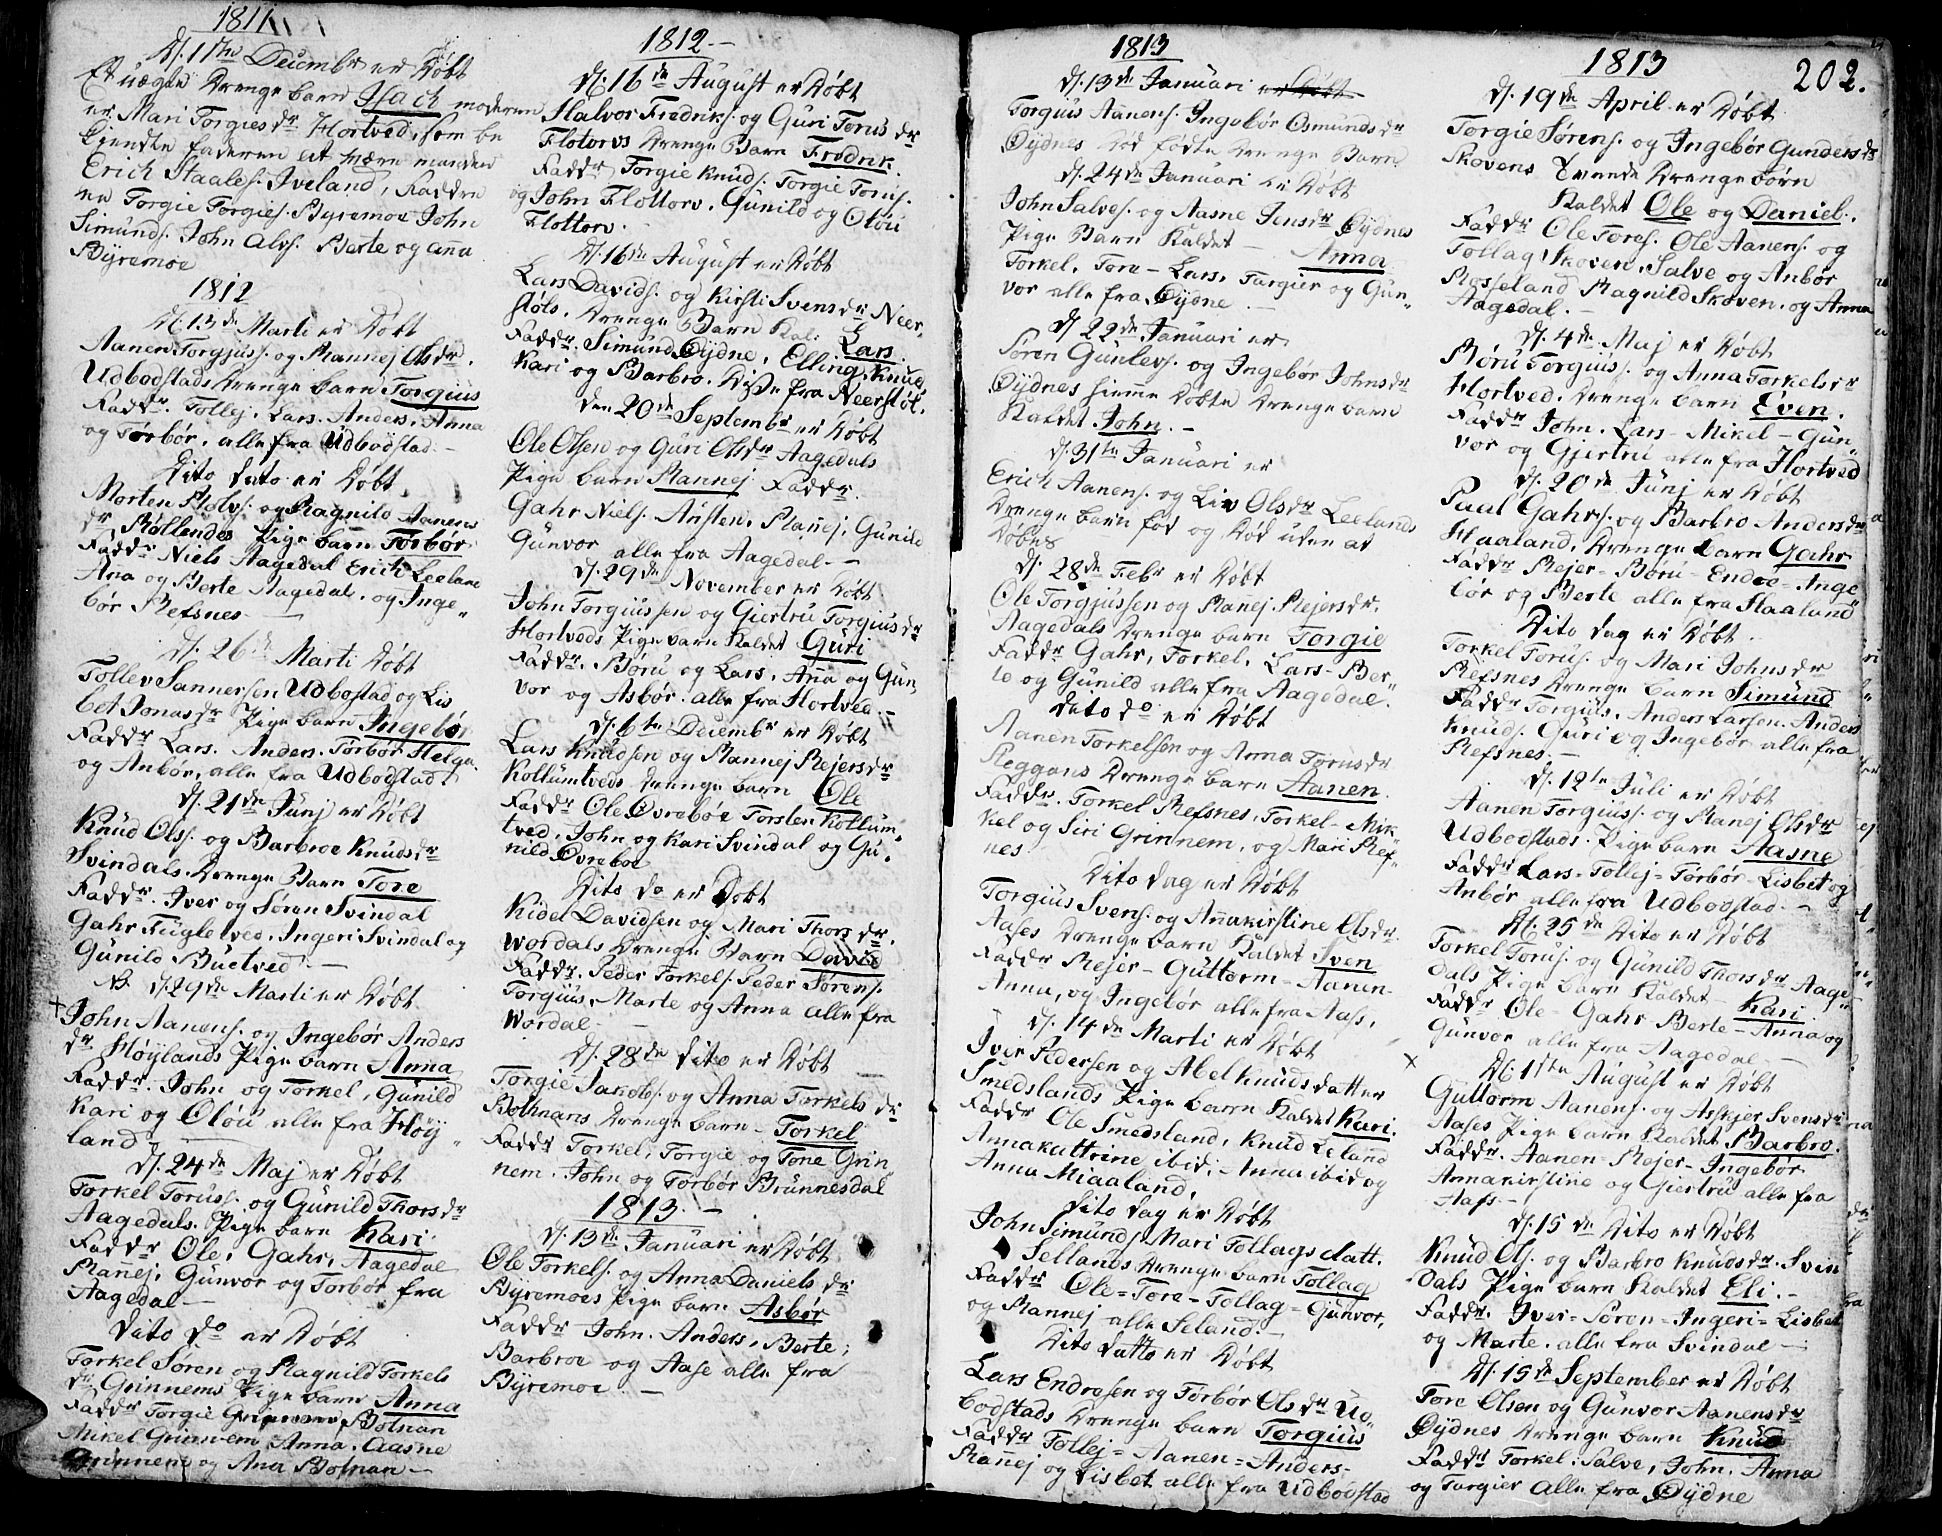 1811
d. 17de Decembr er Døbt
Et uægte Drenge barn Isach moderen
er Mari Torgiesdr Hortved, som be
kiendte faderen at være manden
Erich Staales. Iveland, Faddre
re Torgie Torgies. Byremoe John
Simunds. John Alvs. Berte og Anna
Byremoe
1812
d. 13de Marti er Døbt
Aanen Torgjuss. og Rannej Olsdr.
Udbodstads Drenge barn Torgius
Faddr. Tollej. Lars. Anders. Anna
og Torbør. alle fra Udbodstad. -
Dito dato er Døbt
Morten Rolvs. og Ragnild Aanens
dr Røllendes Pige barn Torbør
Faddr Niels Aagedal Erich Leeland
Ana og Berte Aagedal. og Inge"
bør Refsnes -
d. 26de Marti Døbt
Tollev Sannersen Udbostad og Lis
bet Jonasdr Pige barn Ingebør
Faddr Lars. Anders. Torbør Helga
og Anbør, alle fra Udbodstad.
d. 21de Junj er Døbt
Knud Ols. og Barbroe Knudsdr
Svindals. Drenge Barn Tore
Faddr. Iver og Søren Svindal
Gahr Fugletved. Ingeri Svindal og
Gunild Buetved -
d. 29de Marti er Døbt
+ John Aanens. og Ingebør Anders
dr Høylands Pige barn Anna
Faddr. John og Torkel, Gunild
Kari og Oloú alle fra Høy"
land
d. 24de Maj er Døbt
Torkel Toruss. og Gunild Thorsdr
Aagedals. Pige barn Kari
Faddr Ole, Gahr, Aagedal
Ranej, Gunvor og Torbør fra
Aagedal -
Dito do er Døbt
Torkel Søren og Ragnild Torkels
dr Grinnems Pige barn Anna
Faddr Torgie Grinnem, Botnan
Mikel Grinnem Anna. Aasne
Grinnem og Ana Botnan -
1812. -
d. 16de August er Døbt
Halvor Fredriks. og Guri Torusdr
Flotorvs Drenge Barn Fredrik.
Faddr Torgie Knuds. Torgie Torus.
og John Flottorv. Gunild og Oloú
Flottorv.
d. 16de August er Døbt
Lars Davids. og Kirsti Svensdr Neer,
støls. Drenge Barn Kal. Lars.
Faddr. Simund Øydne, Elling. Knud
Kari og Barbro. Disse fra Neerstøl.
den 20de Septembr er Døbt
Ole Olsen og Guri Olsdr Aagedals
Pige barn Rannej Faddr.
Gahr Niels. Austen. Ranej. Gunild
Gunvor alle fra Aagedal. -
d. 29de November er Døbt
John Torgiussen og Giertru Torgiusdr
Hortveds Pige barn Kaldet Guri
Faddr. Børu og Lars, Aña og Gun,
vor og Asbør. alle fra Hortved. -
d. 6te Decembr er Døbt
Lars Knudsen og Rannej Rejersdr
Kollumtveds Drenge barn Ole
Faddr Ole Øvrebøe Torsten Kollum"
tved. John og Kari Svindal og Gu"
nild Øvreboe
Dito do er Døbt
Kidel Davidsen og Mari Thorsdr.
Wordals Drenge Barn David
Faddr. Peder Torkels. Peder Sørens.
Torgius, Marte og Anna alle fra
Wordal. -
d. 28de Dito er Døbt
Torgie Jakobs. og Anna Torkelsdr
Botnans Drenge barn - Torkel
Faddr Torkel, Torgie og Tone Grin"
nem. John og Torbør Brunnesdal
1813. -
d. 13de Januari er Døbt
Ole Torkels. og Anna Danielsdr
Byremoes Pige barn Asbør
Faddr John. Anders, Berte,
Barbroe og Aase alle fra
Byremoe. -
1813
d. 13de Januari er Døbt
Torgius Aanens. Ingebør Osmundsdr
Øydnes død fødte Drenge Barn
d. 24de Januari er Døbt
John Salves. og Aasne Jensdr Øydnes
Pige Barn Kaldet - Anna
Torkel, Tore - Lars, Torgier og Gun"
vor alle fra Øydne. -
d. 22de Januari er
Søren Gunlevs. og Ingebør Johnsdr
Øydnes hieme døbte Drenge barn
Kaldet John. -
d. 31te Januari er
Erich Aanens. og Liv Olsdr Leelands
Drenge barn fød og død uden at
døbes
d. 28de Febr er Døbt
Ole Torgjussen og Rañej Rejersdr.
Aagedals Drenge barn Torgie
Faddr Gahr, Torkel, Lars - Ber"
te og Gunild alle fra Aagedal.
Dato do er Døbt
Aanen Torkelsen og Anna Torusdr
Røggans Drenge barn Aanen.
Faddr. Torkel Refsnes, Torkel - Mik"
kel og Siri Grinnem, og Mari Ref"
nes
Dito dag er Døbt
Torgius Svens. og Añakirstine Olsdr.
Aases Drenge barn Kaldet Sven
Faddr Rejer - Guttorm - Aanen -
Anna, og Ingebør alle fra Aas.
d. 14de Marti er Døbt
Iver Pedersen og Abel Knudsdatter
Smedslands Pige barn Kaldet Kari.
Faddr Ole Smedsland, Knud Leland
Annakattrine ibid. Anna ibid og
Anna Miaaland.
Dito dag er Døbt
John Simunds. Mari Tollagsdatt.
Sellands Drenge barn Tollag
Faddr Ole = Tore - Tollag = Gunvor,
og Rannej alle Seland. -
Dito datto er Døbt
Lars Endresen og Torbør Olsdr Ud"
bodstads Drenge barn Torgius
Faddr Tollej = Aanen = Anders -
Ranej og Lisbet alle fra Udbodstad
1813
202.
d. 19de April er Døbt
Torgie Sørens. og Ingebør Gundersdr
Skovens Tvende Drengebørn
Kaldet Ole og Daniel.
Faddr Ole Tores. Ole Aanens. og
Tollag Skoven, Salve og Anbør
Rosseland Ragnild Skoven. og Anna
Aagedal. -
d. 4de Maj er Døbt
Børu Torgius. og Anna Torkelsdr
Hortved. Drenge barn Even.
Faddr John. Lars - Mikel - Gun"
vor og Gjertru alle fra Hortved
d. 20de Junj er Døbt
Paal Gahrs. og Barbro Andersdr
Haaland. Drenge barn Gahr
Faddr Rejer - Børu - Endre - Inge"
bør og Berte alle fra Haaland
Dito dag er Døbt.
Torkel Torus. og Mari Johnsdr
Refsnes Drenge barn Simund
Faddr Torgius. Anders Larsen. Anders
Knuds. Guri og Ingebør alle fra
Refsnes. -
d. 12te Juli er Døbt
Aanen Torgiuss. og Ranej Olsdr
Udbodstads. Pige barn Aasne
Faddr Lars - Tollej = Torbør - Lisbet og
Anbør alle fra Udbodstad. -
d. 25de Dito er Døbt
Torkel Torus. og Gunild Thorsdr Aage"
dals Pige barn Kaldet - Kari
Faddr Ole - Gahr - Berte - Anna og
Gunvor alle fra Aagedal -
× d. 1ste August er Døbt
Guttorm Aanens. og Askjer Svensdr
Aases Pige barn Kaldet Barbro.
Faddr. Aanen = Rejer - Ingebør
Annakirstine og Giertru alle fra
Aas. -
d. 15de Dito er Døbt
Knud Ols. og Barbro Knudsdr. Svin
dals Pige barn Kaldet Eli. -
Faddr. Iver - Søren = Ingeri = Lisbet
og Marte. alle fra Svindal -
d. 15de September er Døbt
Tore Olsen og Gunvor Aanensdr
Øydnes Drenge barn Knud
Faddr Torkel. Salve, John. Anna
og Torgier alle fra Øydne